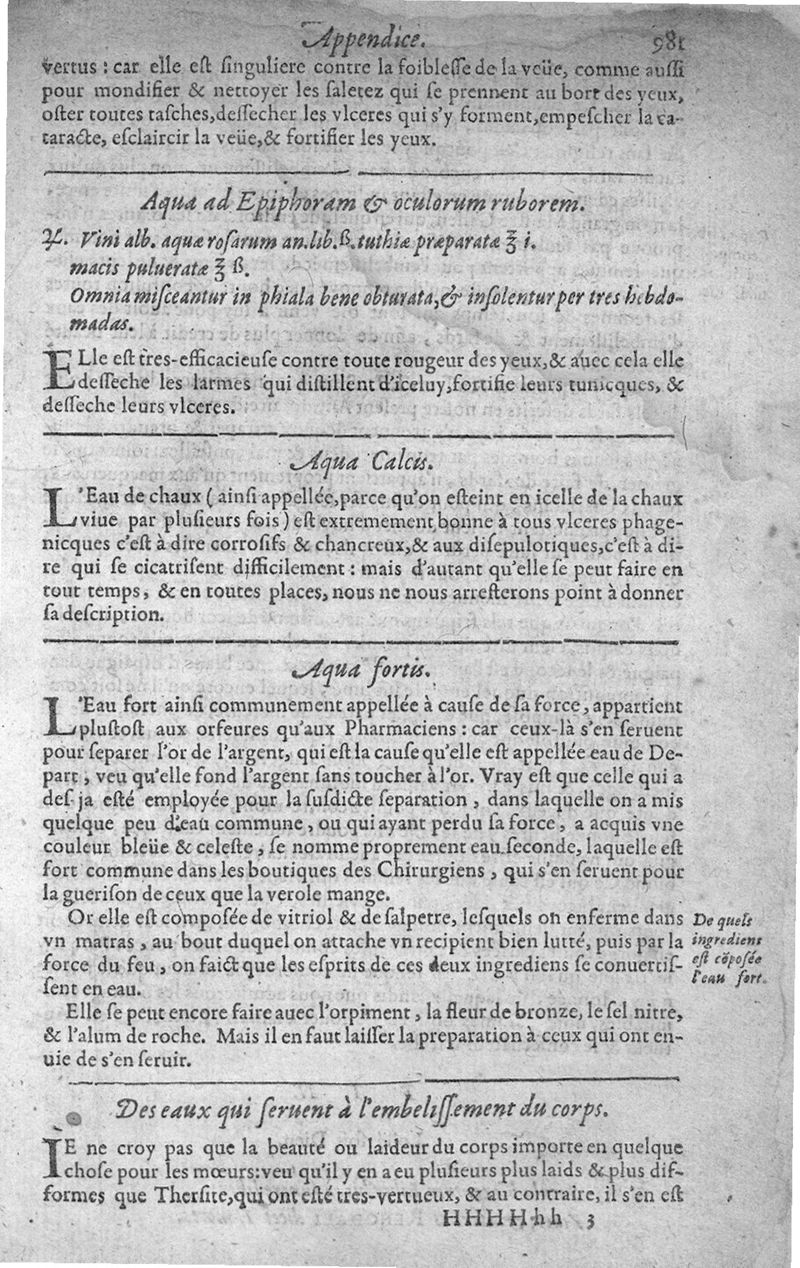 Appendice. 981
vertus : car elle est singuliere contre la foiblesse de la veüe, comme aussi
pour mondifier & nettoyer les saletez qui se prennent au bort des yeux,
oster toutes tasches, dessecher les vlceres qui s'y forment, empescher la ca-
taracte, esclaircir la veüe, & fortifier les yeux.
Aqua ad Epiphoram & oculorum ruborem.
♃. Vini alb. aquæ rosarum an. lib. ß. tuthiæ præparatæ ℥ i.
macis pulueratæ ℥ ß.
Omnia misceantur in phiala bene obturata, & insolentur per tres hebdo-
madas.
ELle est tres-efficacieuse contre toute rougeur des yeux, & auec cela elle
desseche les larmes qui distillent d'iceluy, fortifie leurs tunicques, &
desseche leurs vlceres.
Aqua Calcis.
L'Eau de chaux ( ainsi appellée, parce qu'on esteint en icelle de la chaux
viue par plusieurs fois ) est extremement bonne à tous vlceres phage-
nicques c'est à dire corrosifs & chancreux, & aux disepulotiques, c'est à di-
re qui se cicatrisent difficilement : mais d'autant qu'elle se peut faire en
tout temps, & en toutes places, nous ne nous arresterons point à donner
sa description.
Aqua fortis.
L'Eau fort ainsi communement appellée à cause de sa force, appartient
plustost aux orfeures qu'aux Pharmaciens : car ceux-là s'en seruent
pour separer l'or de l'argent, qui est la cause qu'elle est appellée eau de De-
part, veu qu'elle fond l'argent sans toucher à l'or. Vray est que celle qui a
des-ja esté employée pour la susdicte separation, dans laquelle on a mis
quelque peu d'eau commune, ou qui ayant perdu sa force, a acquis vne
couleur bleüe & celeste, se nomme proprement eau seconde, laquelle est
fort commune dans les boutiques des Chirurgiens, qui s'en seruent pour
la guerison de ceux que la verole mange.
Or elle est composée de vitriol & de salpetre, lesquels on enferme dans
vn matras, au bout duquel on attache vn recipient bien lutté, puis par la
force du feu, on faict que les esprits de ces deux ingrediens se conuertis-
sent en eau.
De quels
ingrediens
est cōposée
l'eau fort.
Elle se peut encore faire auec l'orpiment, la fleur de bronze, le sel nitre,
& l'alum de roche. Mais il en faut laisser la preparation à ceux qui ont en-
uie de s'en seruir.
Des eaux qui seruent à l'embelissement du corps.
IE ne croy pas que la beauté ou laideur du corps importe en quelque
chose pour les mœurs: veu qu'il y en a eu plusieurs plus laids & plus dif-
formes que Thersite, qui ont esté tres-vertueux, & au contraire, il s'en est
HHHHhh 3